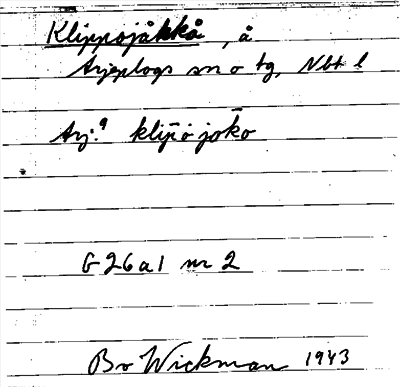 Klippojåkkå, å
Arjeplogs sn o tg, Nbt l
Arj:⁹ klip̄o joko
G 26 a 1 nr 2
Bo Wickman 1943